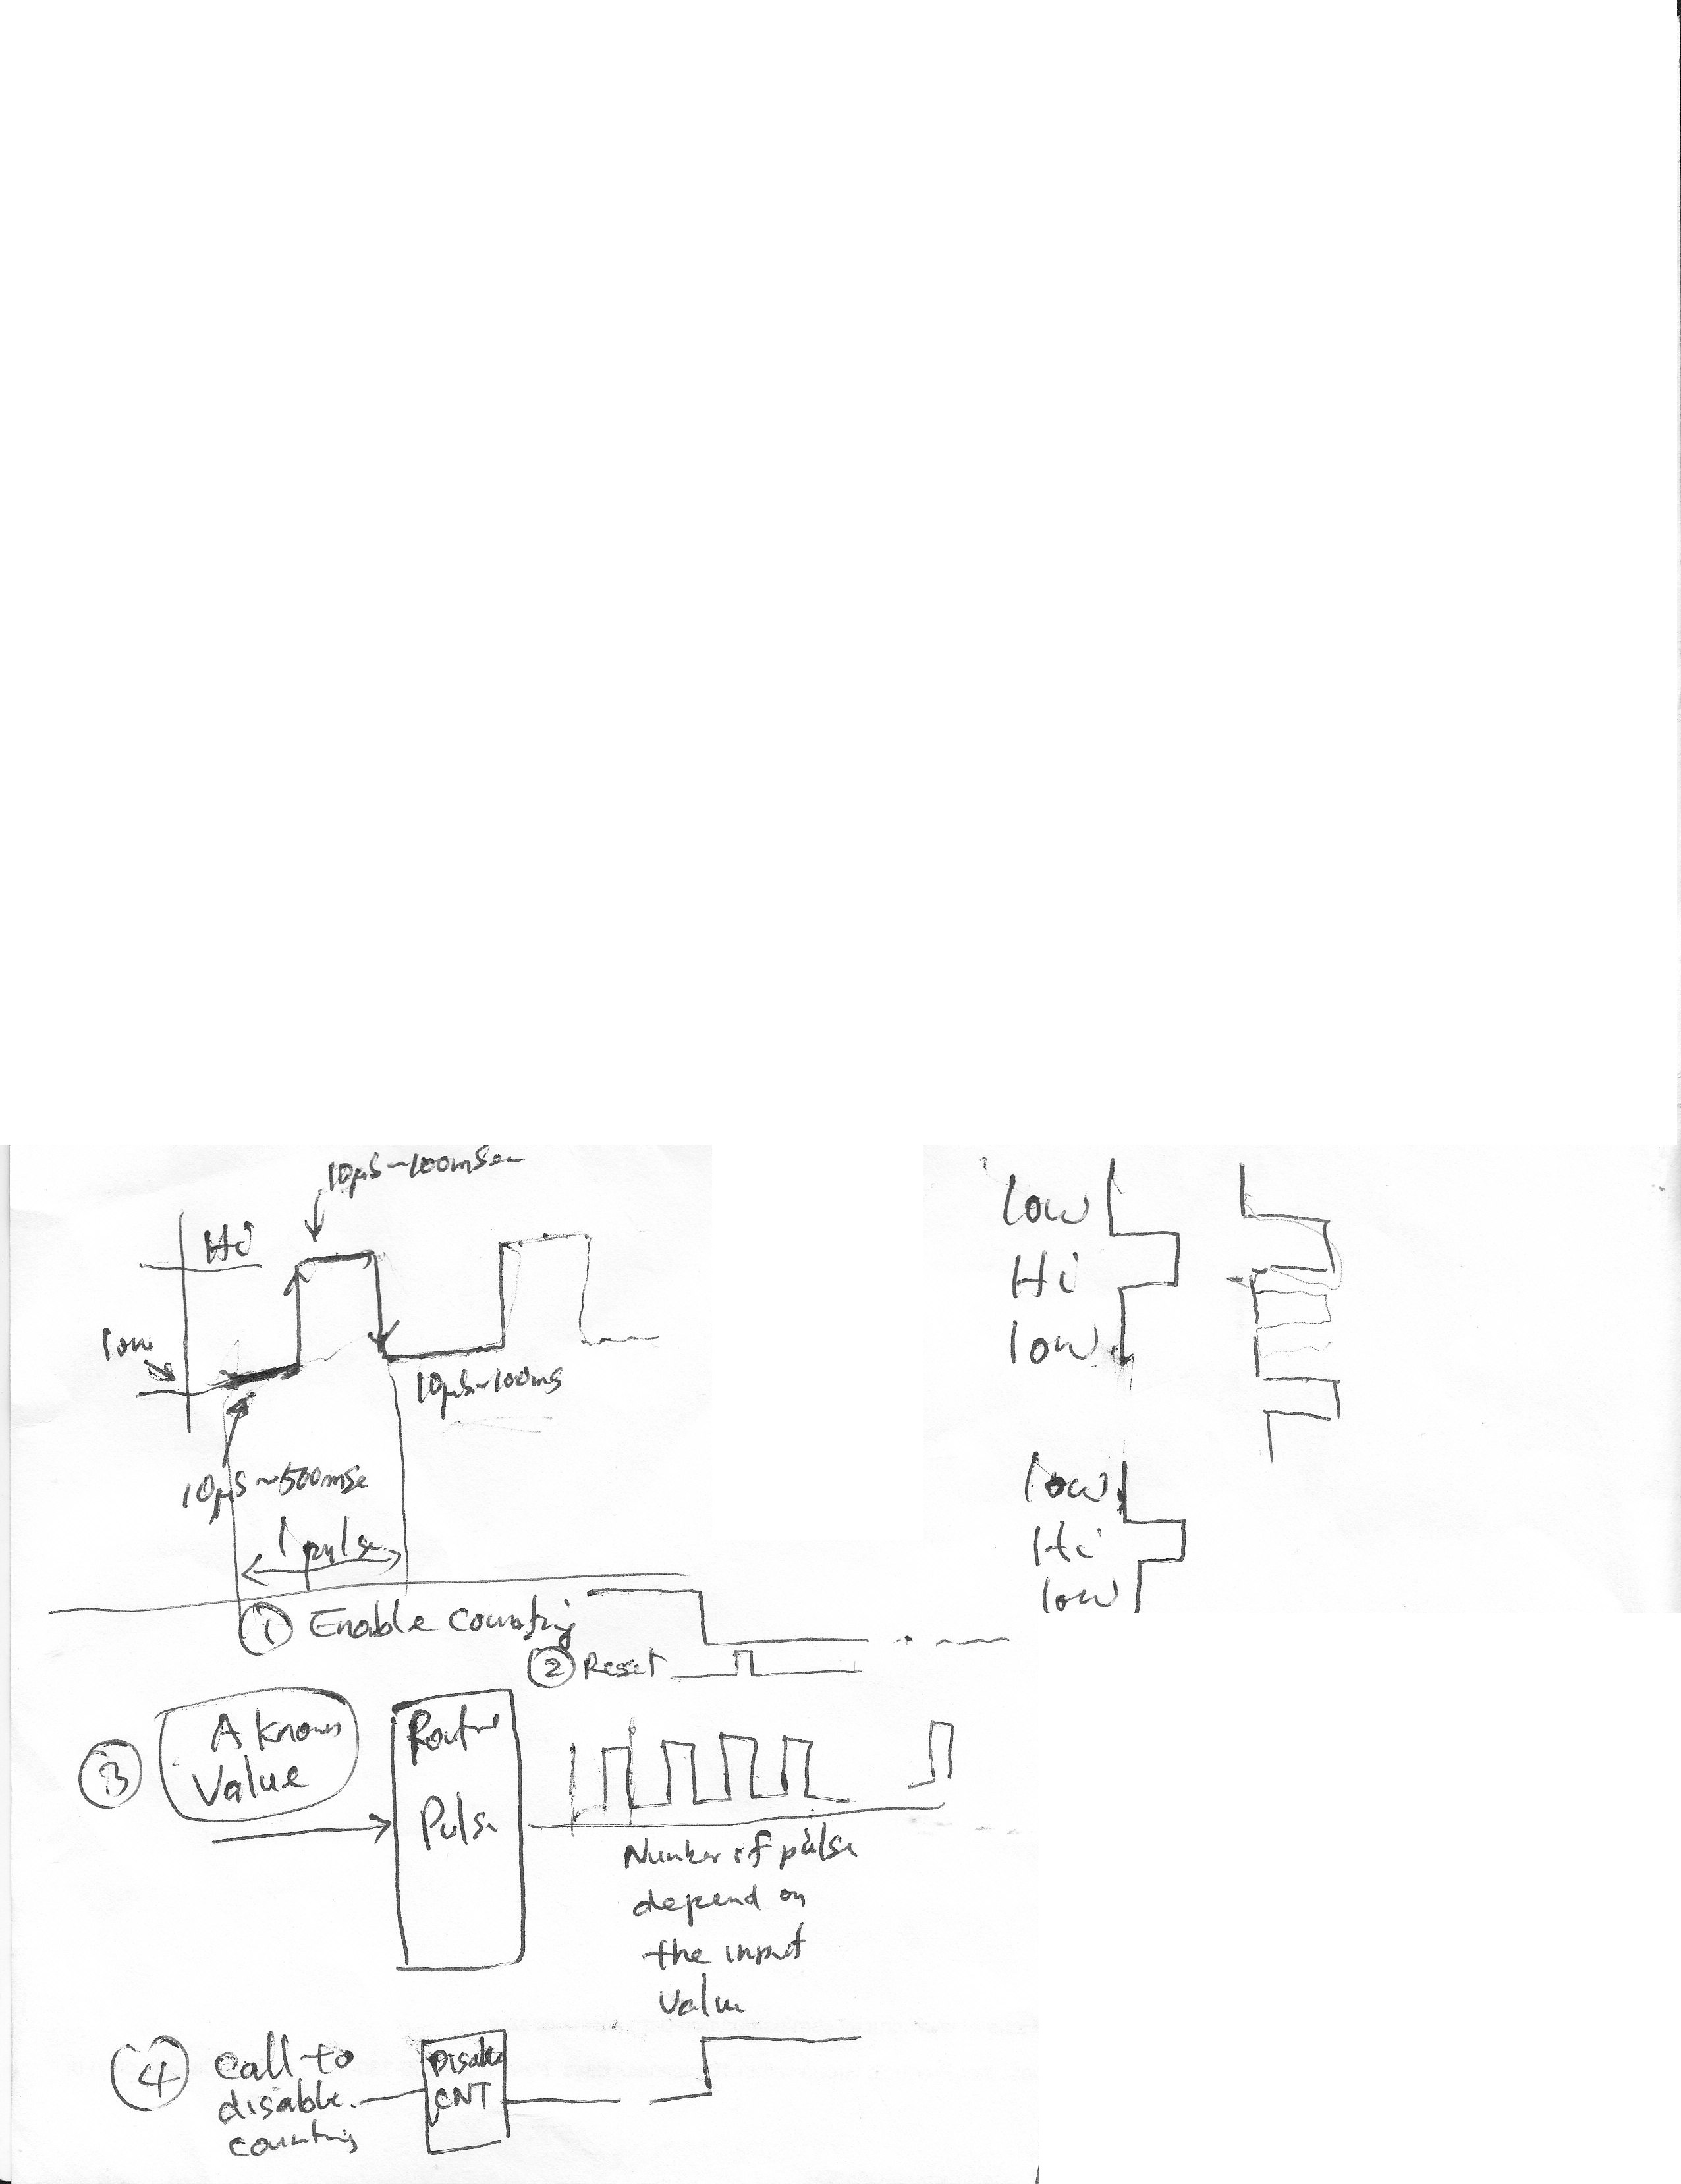 10μS~100mSec
Hi
low
10μS~100mS
10μS~500mSe
1 pulse
low
Hi
low
low
Hi
low
① Enable Counting
② Reset
③ A known
Value
Routine
Pulse
Number of pulse
depend on
the input
Value
④ Call to
disable
counting
Disable
CNT